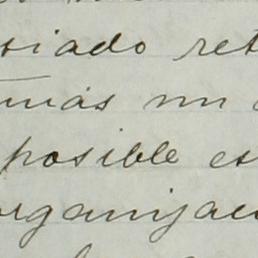 siado ret
más mi
posible es
organizac